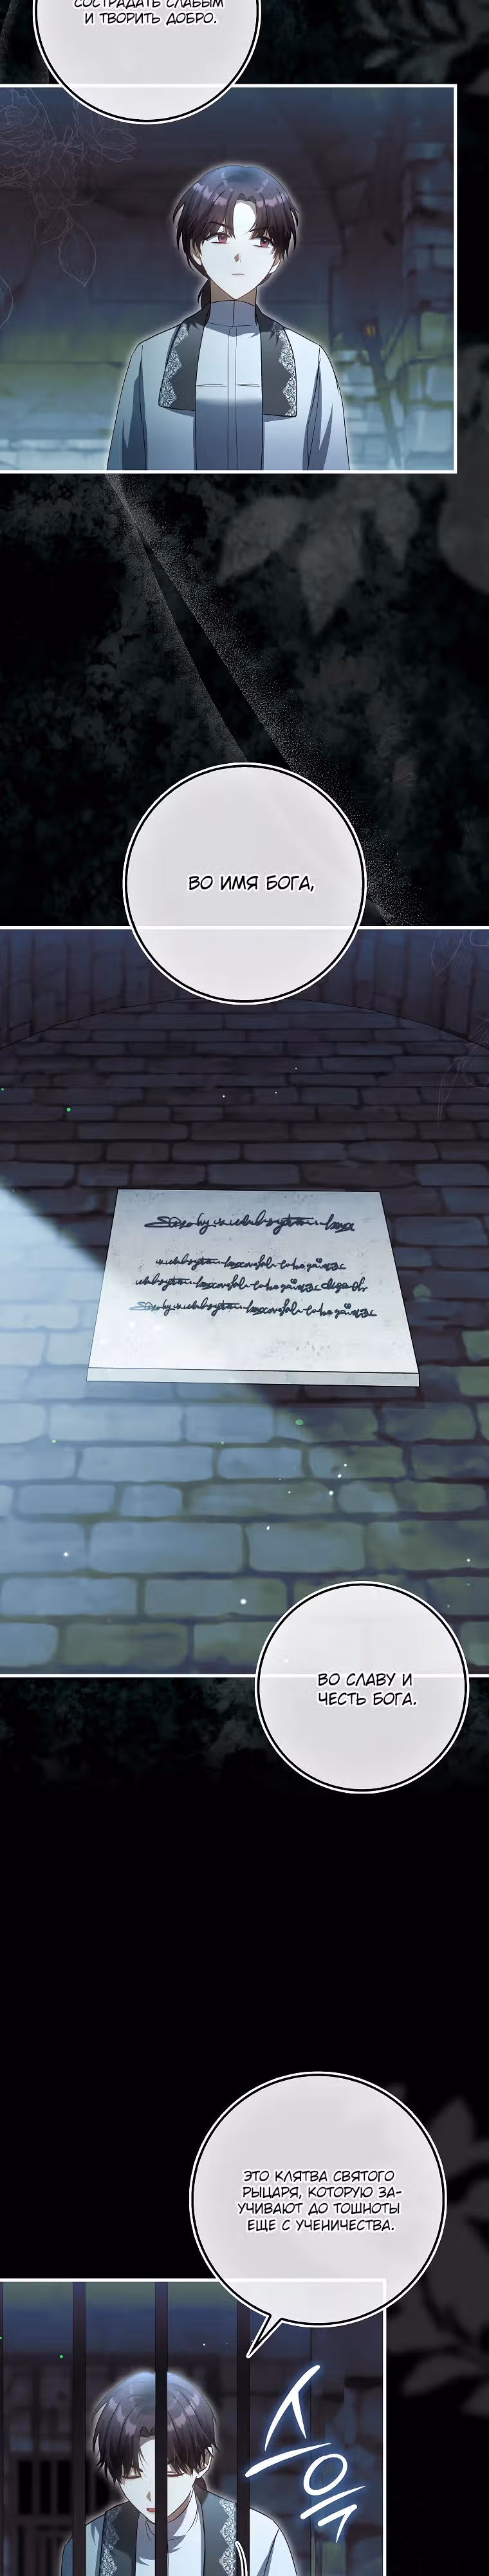 СОСТРАДАТЬ СЛАБЫМ
И ТВОРИТЬ ДОБРО.
ВО ИМЯ БОГА,
ВО СЛАВУ И
ЧЕСТЬ БОГА.
ЭТО КЛЯТВА СВЯТОГО
РЫЦАРЯ, КОТОРУЮ ЗА-
УЧИВАЮТ ДО ТОШНОТЫ
ЕЩЕ С УЧЕНИЧЕСТВА.